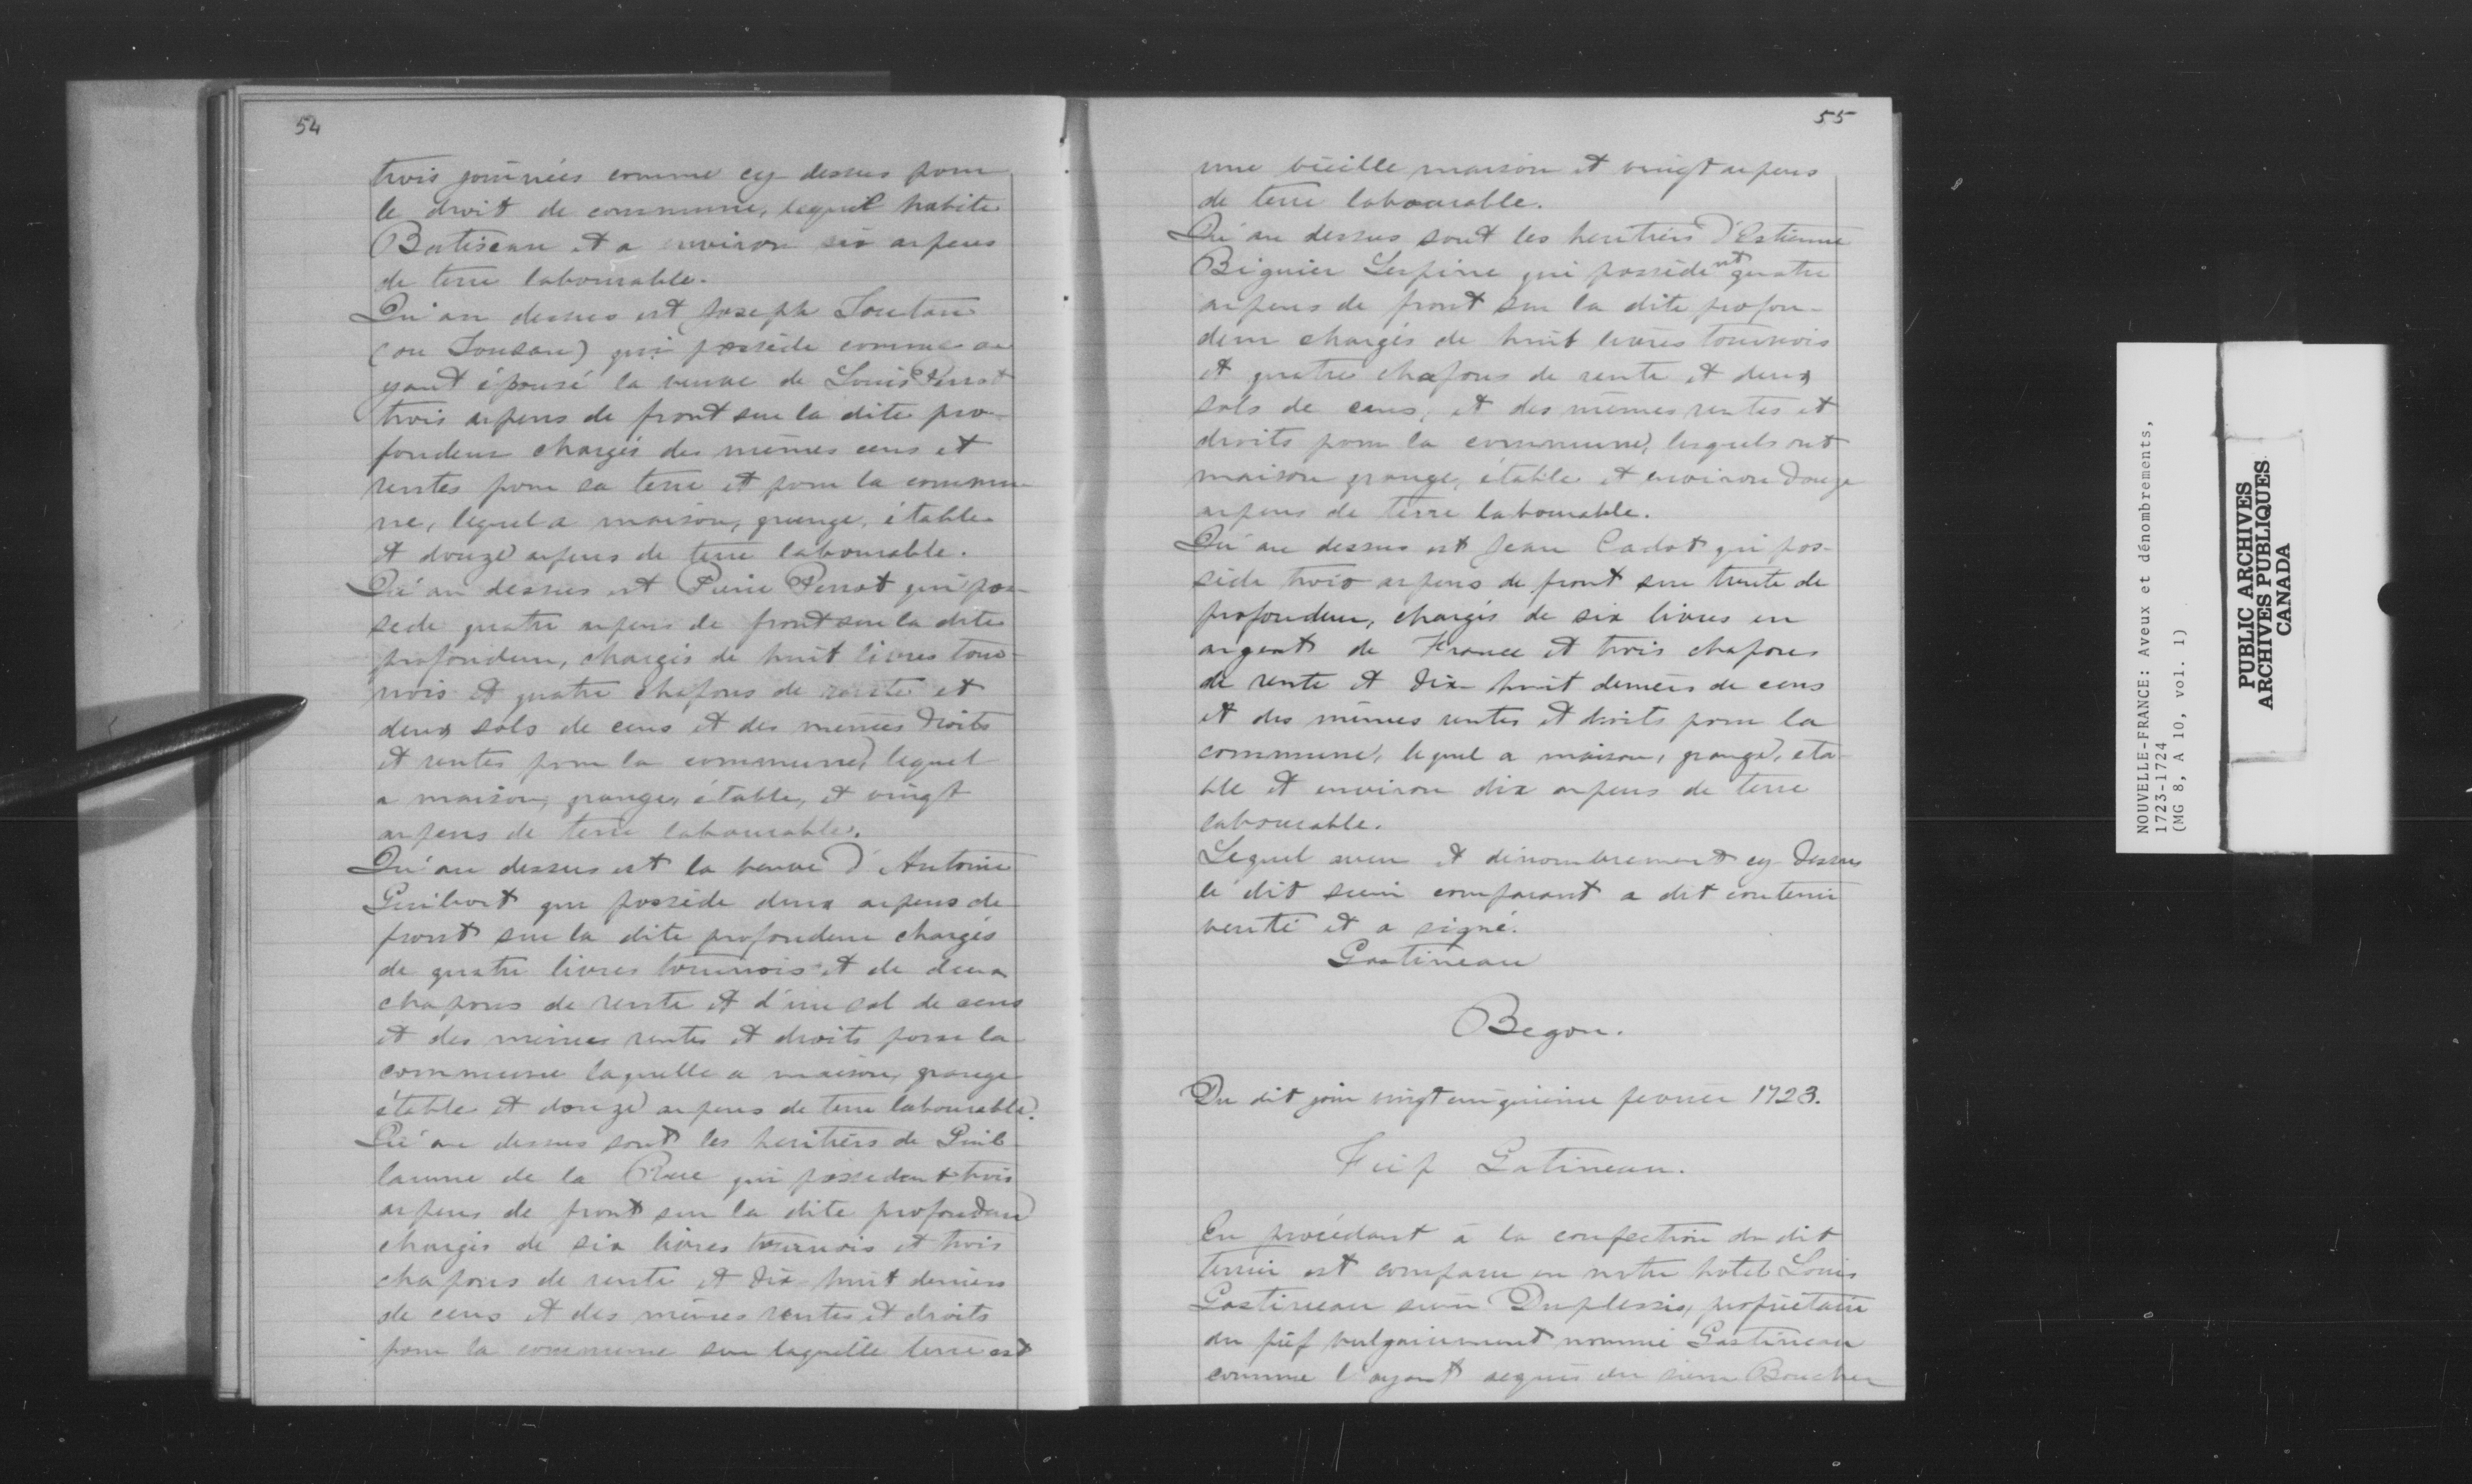 54
trois journées comme cy dessus pour
le droit de commune, lequel habite
Batiscan et a environ six arpens
de terre labourable.
Qu'au dessus est Joseph Toutan
(ou Tousan) qui possède comme a
yant épousé la veuve de Louis Perrot
trois arpens de front sur la dite pro-
fondeur chargés des mêmes cens et
rentes pour sa terre et pour la commu
ne, lequel a maison, grange, étable
et douze arpens de terre labourable.
Qu'au dessus est Pierre Perrot qui pos-
sede quatre arpens de front sur la dite
profondeur, chargés de huit livres tour-
nois et quatre chapons de rente et
deux sols de cens et des memes droits
et rentes pour la commune, lequel
a maison, grange, étable, et vingt
arpens de terre labourable.
Qu'au dessus est la veuve d'Antoine
Guibort qui possède deux arpens de
front sur la dite profondeur chargés
de quatre livres tournois et de deux
chapons de rente et d'un sol de cens
et des memes rentes et droits pour la
commune laquelle a maison, grange
étable et douze arpens de terre labourable.
Qu'au dessus sont les heritiers de Guil-
laume de la Rue qui possedent trois
arpens de front sur la dite profondeur
chargés de six livres tournois et trois
chapons de rente et dix-huit deniers
de cens et des mêmes rentes et droits
pour la commune sur laquelle terre est
55
une vieille maison et vingt arpens
de terre labourable.
Qu'au dessus sont les heritiers d'Estienne
Biguier Lespine qui possèdent quatre
arpens de front sur la dite profon-
deur chargés de huit livres tournois
et quatre chapons de rente et deux
sols de cens, et des mêmes rentes et
droits pour la commune, lesquels ont
maison grange, étable et environ douze
arpens de terre labourable.
Qu'au dessus est Jean Cadot qui pos-
sède trois arpens de front sur trente de
profondeur, chargés de six livres en
argent de France et trois chapons
de rente et dix-huit deniers de cens
et des mêmes rentes et droits pour la
commune, lequel a maison, grange, éta-
ble et environ dix arpens de terre
labourable.
Lequel aveu et dénombrement cy-dessus
le dit sieur comparant a dit contenir
verité et a signé.
Gastineau
Begon.
Du dit jour vingt cinquième fevrier 1723.
Fief Gatineau.
En procédant à la confection du dit
terrier est comparu en notre hotel Louis
Gastineau sieur Duplessis, propriétaire
du fief vulgairement nommé Gastineau
comme l'ayant acquis du sieur Boucher
NOUVELLE-FRANCE: Aveux et dénombrements,
1723-1724
(MG 8, A 10, vol. 1)
PUBLIC ARCHIVES
ARCHIVES PUBLIQUES
CANADA